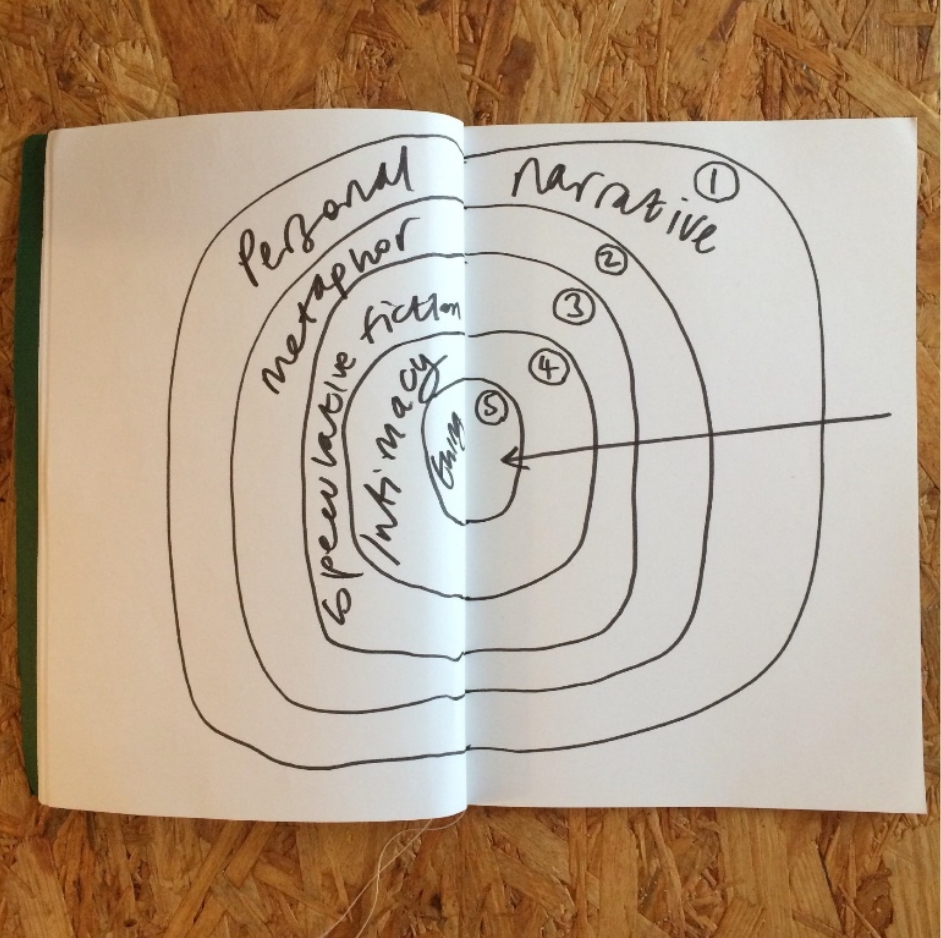 Personal narrative ①
metaphor ②
speculative fiction ③
Intimacy ④
thing ⑤